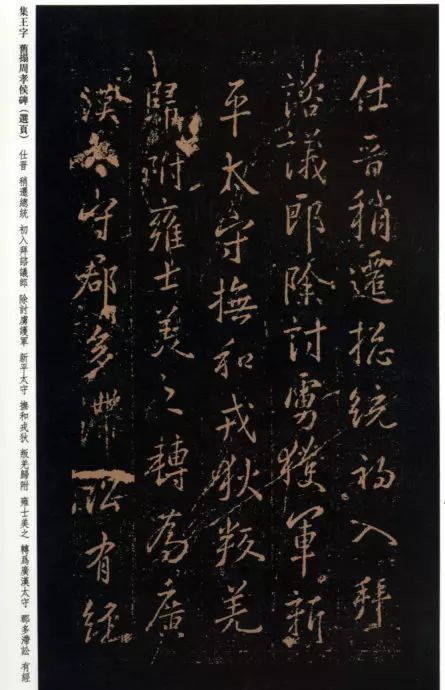 集王字 舊搨周孝侯碑（選頁） 仕晉 稍遷總統 初入拜諮議郎 除討虜護軍 新平太守 撫和戎狄 叛羌歸附 雍士美之 轉爲廣漢太守 郡多滯訟 有經
仕晉稍遷揔統初入拜
諮議郎除討虜護軍新
平太守撫和戎狄叛羌
歸附雍士美之轉為廣
漢太守郡多滯訟有經